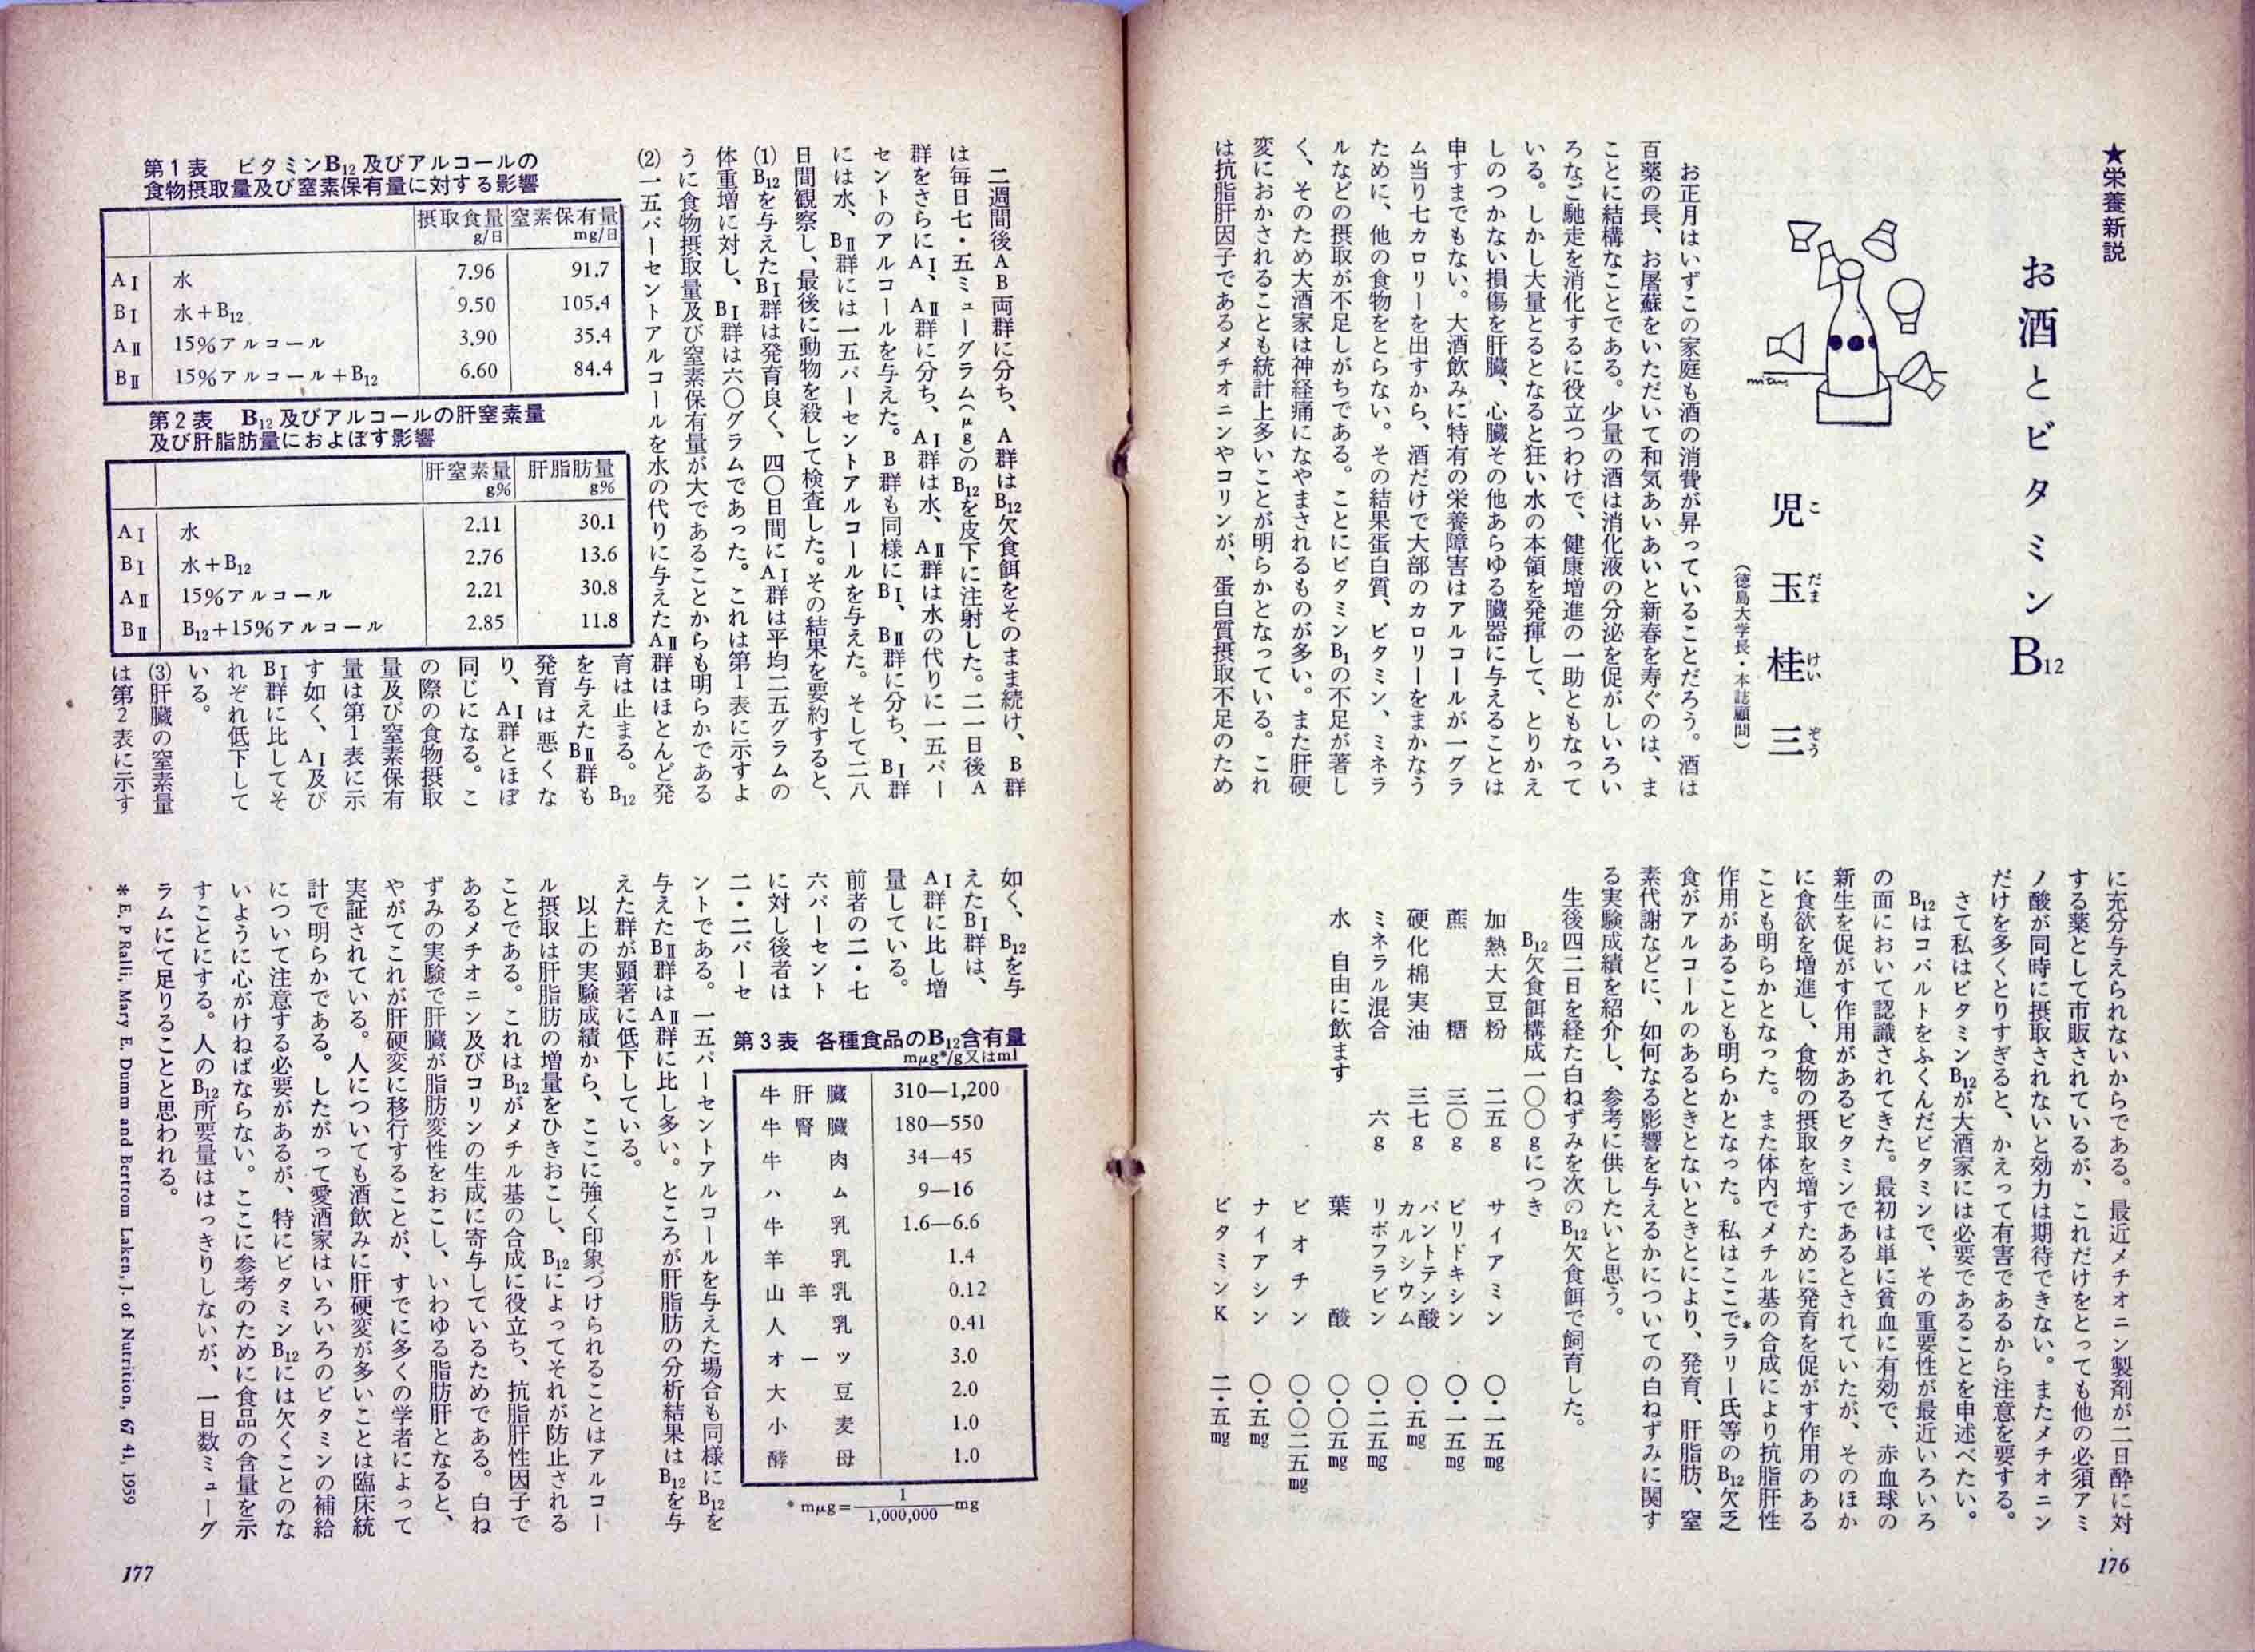 ★栄養新説
お酒とビタミンB12
児玉桂三
こだまけいぞう
(徳島大学長・本誌顧問)
お正月はいずこの家庭も酒の消費が昇っていることだろう。酒は
百薬の長、お屠蘇をいただいて和気あいあいと新春を寿ぐのは、ま
ことに結構なことである。少量の酒は消化液の分泌を促がしいろい
ろなご馳走を消化するに役立つわけで、健康増進の一助ともなって
いる。しかし大量とるとなると狂い水の本領を発揮して、とりかえ
しのつかない損傷を肝臓、心臓その他あらゆる臓器に与えることは
申すまでもない。大酒飲みに特有の栄養障害はアルコールが一グラ
ム当り七カロリーを出すから、酒だけで大部のカロリーをまかなう
ために、他の食物をとらない。その結果蛋白質、ビタミン、ミネラ
ルなどの摂取が不足しがちである。ことにビタミンB1の不足が著し
く、そのため大酒家は神経痛になやまされるものが多い。また肝硬
変におかされることも統計上多いことが明らかとなっている。これ
は抗脂肝因子であるメチオニンやコリンが、蛋白質摂取不足のため
に充分与えられないからである。最近メチオニン製剤が二日酔に対
する薬として市販されているが、これだけをとっても他の必須アミ
ノ酸が同時に摂取されないと効力は期待できない。またメチオニン
だけを多くとりすぎると、かえって有害であるから注意を要する。
さて私はビタミンB12が大酒家には必要であることを申述べたい。
B12はコバルトをふくんだビタミンで、その重要性が最近いろいろ
の面において認識されてきた。最初は単に貧血に有効で、赤血球の
新生を促がす作用があるビタミンであるとされていたが、そのほか
に食欲を増進し、食物の摂取を増すために発育を促がす作用のある
ことも明らかとなった。また体内でメチル基の合成により抗脂肝性
作用があることも明らかとなった。私はここで*ラリー氏等のB12欠乏
食がアルコールのあるときとないときとにより、発育、肝脂肪、窒
素代謝などに、如何なる影響を与えるかについての白ねずみに関す
る実験成績を紹介し、参考に供したいと思う。
生後四二日を経た白ねずみを次のB12欠食餌で飼育した。
B12欠食餌構成一〇〇gにつき
加熱大豆粉 二五g
蔗糖 三〇g
硬化棉実油 三七g
ミネラル混合 六g
水 自由に飲ます
サイアミン 〇・一五mg
ピリドキシン 〇・一五mg
パントテン酸カルシウム 〇・五mg
リボフラビン 〇・二五mg
葉酸 〇・〇五mg
ビオチン 〇・〇二五mg
ナイアシン 〇・五mg
ビタミンK 二・五mg
176
二週間後AB両群に分ち、A群はB12欠食餌をそのまま続け、B群
は毎日七・五ミューグラム(μg)のB12を皮下に注射した。二一日後A
群をさらにAⅠ、AⅡ群に分ち、AⅠ群は水、AⅡ群は水の代りに一五パー
セントのアルコールを与えた。B群も同様にBⅠ、BⅡ群に分ち、BⅠ群
には水、BⅡ群には一五パーセントアルコールを与えた。そして二八
日間観察し、最後に動物を殺して検査した。その結果を要約すると、
(1)B12を与えたBⅠ群は発育良く、四〇日間にAⅠ群は平均二五グラムの
体重増に対し、BⅠ群は六〇グラムであった。これは第1表に示すよ
うに食物摂取量及び窒素保有量が大であることからも明らかである
(2)一五パーセントアルコールを水の代りに与えたAⅡ群はほとんど発
育は止まる。B12
を与えたBⅡ群も
発育は悪くな
り、AⅠ群とほぼ
同じになる。こ
の際の食物摂取
量及び窒素保有
量は第1表に示
す如く、AⅠ及び
BⅠ群に比してそ
れぞれ低下して
いる。
(3)肝臓の窒素量
は第2表に示す
第1表 ビタミンB12及びアルコールの
食物摂取量及び窒素保有量に対する影響
摂取食量 g/日 窒素保有量 mg/日
AⅠ 水 7.96 91.7
BⅠ 水+B12 9.50 105.4
AⅡ 15%アルコール 3.90 35.4
BⅡ 15%アルコール+B12 6.60 84.4
第2表 B12及びアルコールの肝窒素量
及び肝脂肪量におよぼす影響
肝窒素量 g% 肝脂肪量 g%
AⅠ 水 2.11 30.1
BⅠ 水+B12 2.76 13.6
AⅡ 15%アルコール 2.21 30.8
BⅡ B12+15%アルコール 2.85 11.8
如く、B12を与
えたBⅠ群は、
AⅠ群に比し増
量している。
前者の二・七
六パーセント
に対し後者は
二・二パーセ
ントである。一五パーセントアルコールを与えた場合も同様にB12を
与えたBⅡ群はAⅡ群に比し多い。ところが肝脂肪の分析結果はB12を与
えた群が顕著に低下している。
以上の実験成績から、ここに強く印象づけられることはアルコー
ル摂取は肝脂肪の増量をひきおこし、B12によってそれが防止される
ことである。これはB12がメチル基の合成に役立ち、抗脂肝性因子で
あるメチオニン及びコリンの生成に寄与しているためである。白ね
ずみの実験で肝臓が脂肪変性をおこし、いわゆる脂肪肝となると、
やがてこれが肝硬変に移行することが、すでに多くの学者によって
実証されている。人についても酒飲みに肝硬変が多いことは臨床統
計で明らかである。したがって愛酒家はいろいろのビタミンの補給
について注意する必要があるが、特にビタミンB12には欠くことのな
いように心がけねばならない。ここに参考のために食品の含量を示
すことにする。人のB12所要量ははっきりしないが、一日数ミューグ
ラムにて足りることと思われる。
第3表 各種食品のB12含有量
mμg*/g又はml
牛肝臓 310—1,200
牛腎臓 180—550
牛肉 34—45
ハム 9—16
牛乳 1.6—6.6
羊乳 1.4
山羊乳 0.12
人乳 0.41
オーツ 3.0
大豆 2.0
小麦 1.0
酵母 1.0
* mμg=1/1,000,000 mg
* E. P Ralli, Mary E. Dumm and Bertrom Laken, J. of Nutrition, 67 41, 1959
177